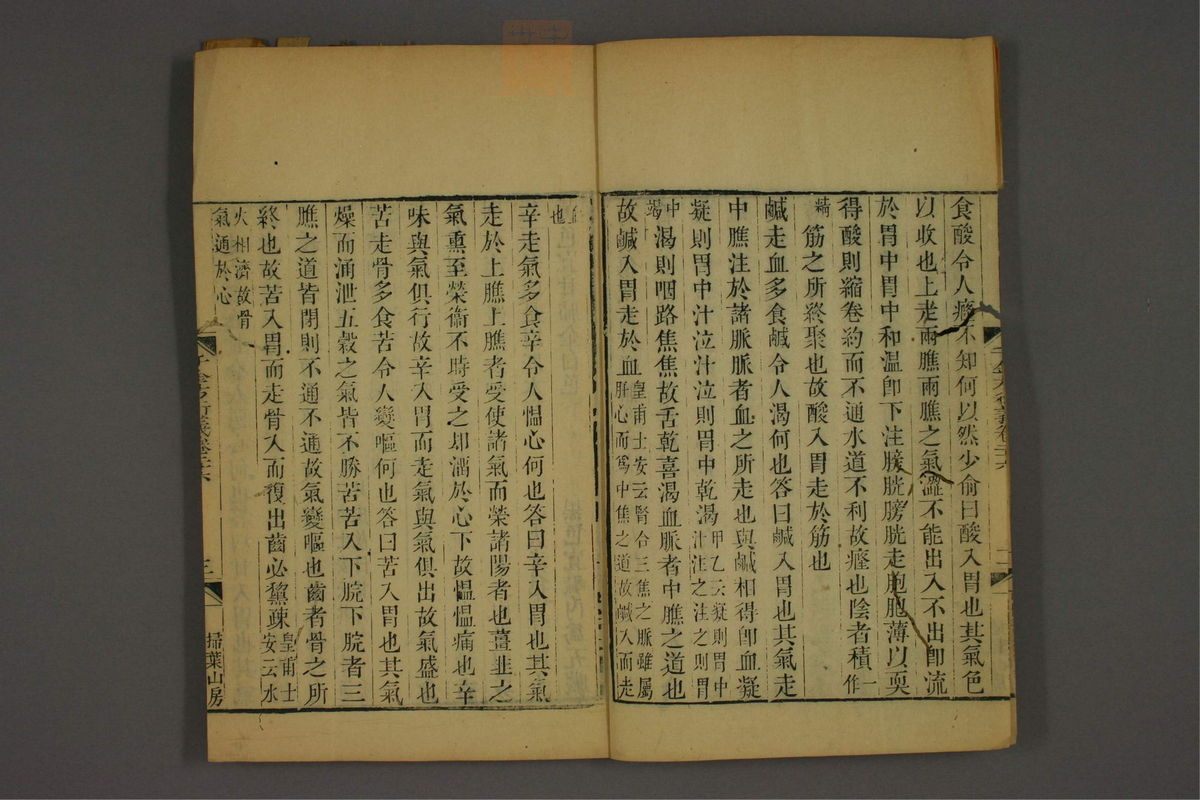 食酸令人癃不知何以然少俞曰酸入胃也其氣色
以收也上走兩膲兩膲之氣澀不能出入不出卽流
於胃中胃中和温卽下注膀胱膀胱走胞胞薄以耎
得酸則縮卷約而不通水道不利故癃也陰者積一作
精筋之所終聚也故酸入胃走於筋也
鹹走血多食鹹令人渴何也答曰鹹入胃也其氣走
中膲注於諸脈脈者血之所走也與鹹相得卽血凝
凝則胃中汁泣汁泣則胃中乾渴甲乙云凝則胃中汁注之注之則胃中
竭渴則咽路焦焦故舌乾喜渴血脈者中膲之道也
故鹹入胃走於血皇甫士安云腎合三焦之脈雖屬肝心而爲中焦之道故鹹入而走
血也
辛走氣多食辛令人慍心何也答曰辛入胃也其氣
走於上膲上膲者受使諸氣而榮諸陽者也薑韭之
氣熏至榮衞不時受之却溜於心下故慍慍痛也辛
味與氣俱行故辛入胃而走氣與氣俱出故氣盛也
苦走骨多食苦令人變嘔何也答曰苦入胃也其氣
燥而涌泄五穀之氣皆不勝苦苦入下脘下脘者三
膲之道皆閉則不通不通故氣變嘔也齒者骨之所
終也故苦入胃而走骨入而復出齒必黧疎皇甫士安云水
火相濟故骨氣通於心
千金方衍義卷二十六
三
掃葉山房